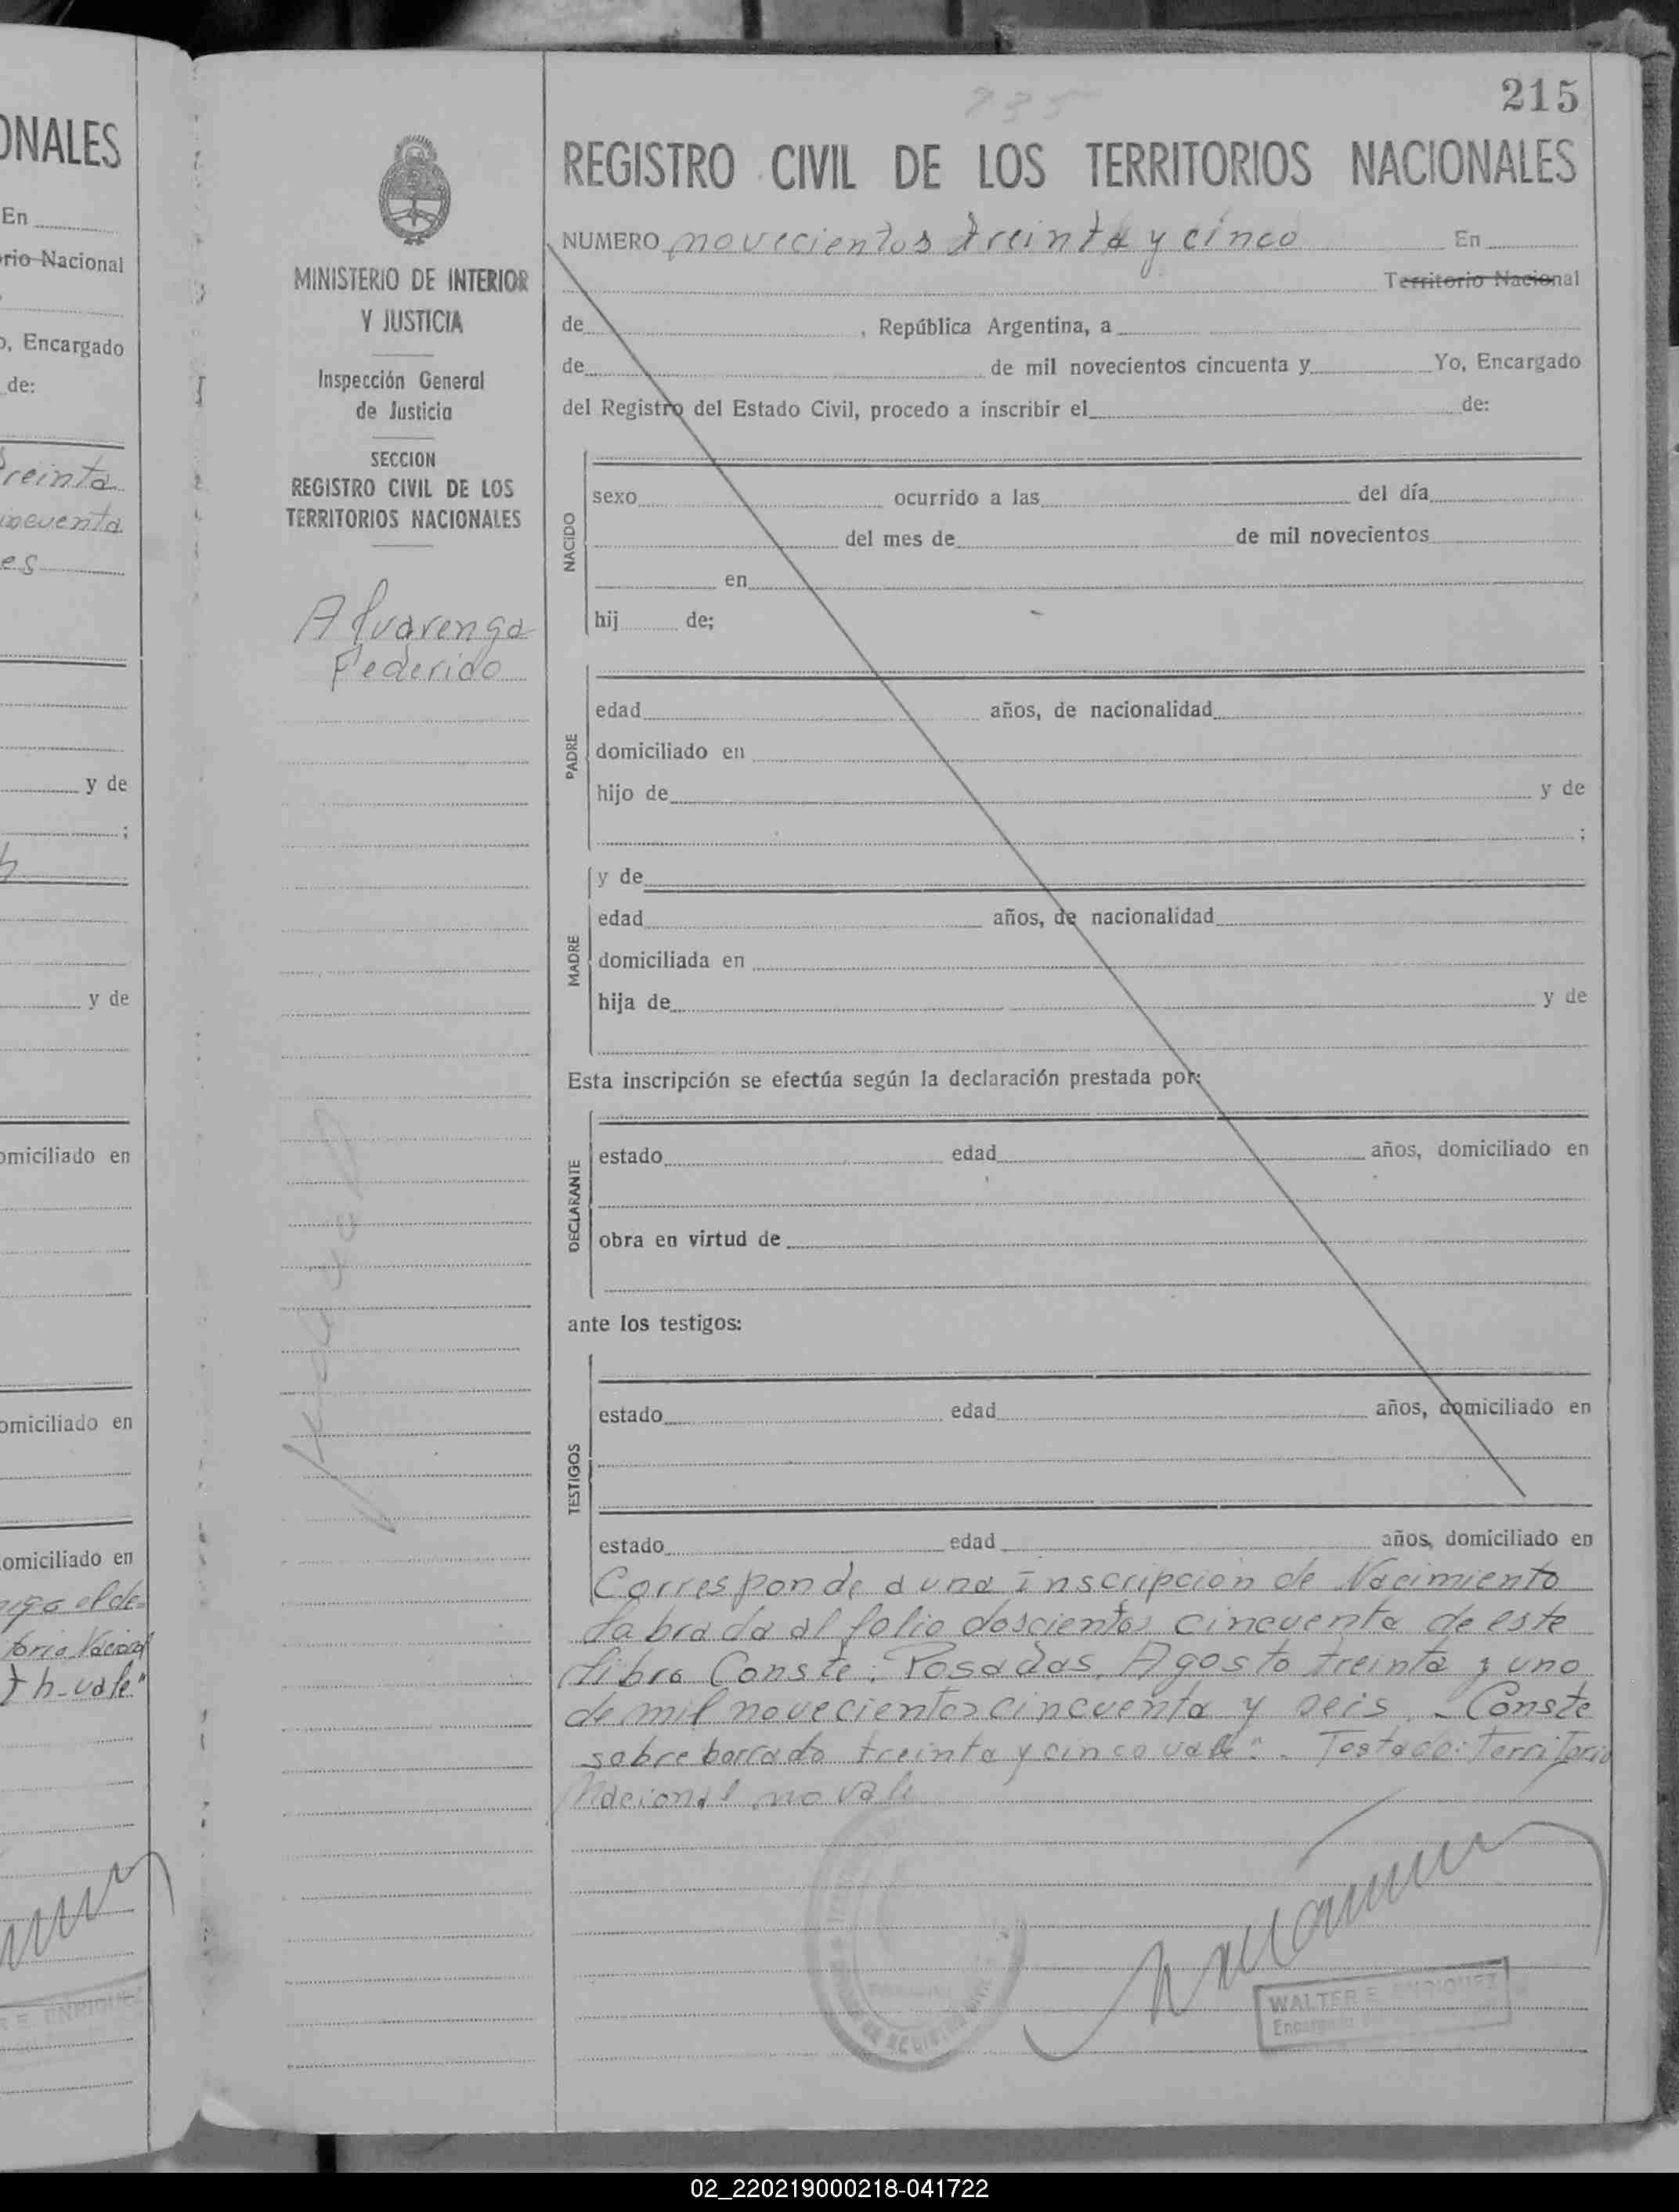 ONALES
En
rio Nacional
o, Encargado
de:
reinta
ncuenta
es
y de
;
y de
omiciliado en
omiciliado en
omiciliado en
torio Nacional
th-vale"
E. ENRIQUEZ
215
935
REGISTRO CIVIL DE LOS TERRITORIOS NACIONALES
NUMERO novecientos treinta y cinco En
Territorio Nacional
de , República Argentina, a
de de mil novecientos cincuenta y Yo, Encargado
del Registro del Estado Civil, procedo a inscribir el de:
MINISTERIO DE INTERIOR
Y JUSTICIA
Inspección General
de Justicia
SECCION
REGISTRO CIVIL DE LOS
TERRITORIOS NACIONALES
Alvarenga
Federido
NACIDO
sexo ocurrido a las del día
del mes de de mil novecientos
en
hij de;
PADRE
edad años, de nacionalidad
domiciliado en
hijo de y de
;
y de
MADRE
edad años, de nacionalidad
domiciliada en
hija de y de
Esta inscripción se efectúa según la declaración prestada por:
DECLARANTE
estado edad años, domiciliado en
obra en virtud de
ante los testigos:
TESTIGOS
estado edad años, domiciliado en
estado edad años, domiciliado en
Corresponde a una Inscripcion de Nacimiento
labrada al folio doscientos cincuenta de este
libro Conste: Posadas, Agosto treinta y uno
de mil novecientos cincuenta y seis. - Conste
sobre borrado treinta y cinco vale". - Testado: Territorio
Nacional no vale
WALTER E. ENRIQUEZ
Encargado
02_220219000218-041722